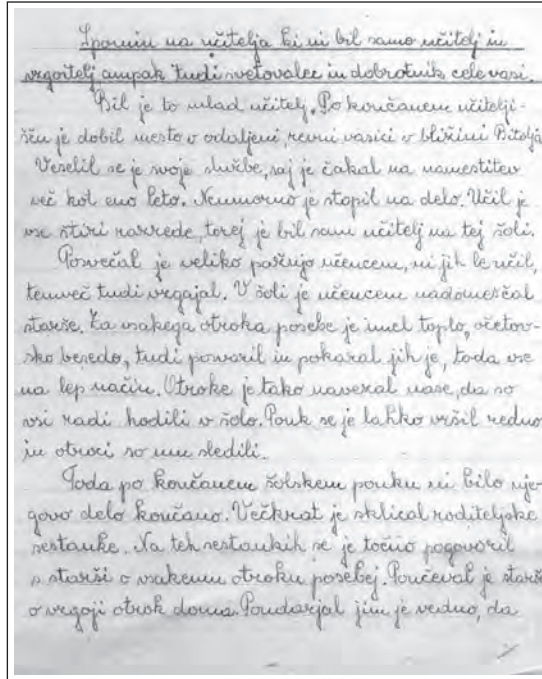 Spomin na učitelja ki ni bil samo učitelj in
vzgojitelj ampak tudi svetovalec in dobrotnik cele vasi.
Bil je to mlad učitelj. Po končanem učitelji-
šču je dobil mesto v odaljeni, revni vasici v bližini Bitolja
Veselil se je svoje službe, saj je čakal na namestitev
več kot eno leto. Neumorno je stopil na delo. Učil je
vse štiri razrede, torej je bil sam učitelj na tej šoli.
Posvečal je veliko pažnjo učencem, ni jih le učil,
temveč tudi vzgajal. V šoli je učencem nadomeščal
starše. Za vsakega otroka posebe je imel toplo, očetov-
sko besedo, tudi posvaril in pokaral jih je, toda vse
na lep način. Otroke je tako navezal nase, da so
vsi radi hodili v šolo. Pouk se je lahko vršil redno
in otroci so mu sledili.
Toda po končanem šolskem pouku ni bilo nje-
govo delo končano. Večkrat je sklical roditeljske
sestanke. Na teh sestankih se je točno pogovoril
s starši o vsakemu otroku posebej. Poučeval je starše
o vzgoji otrok doma. Poudarjal jim je vedno, da